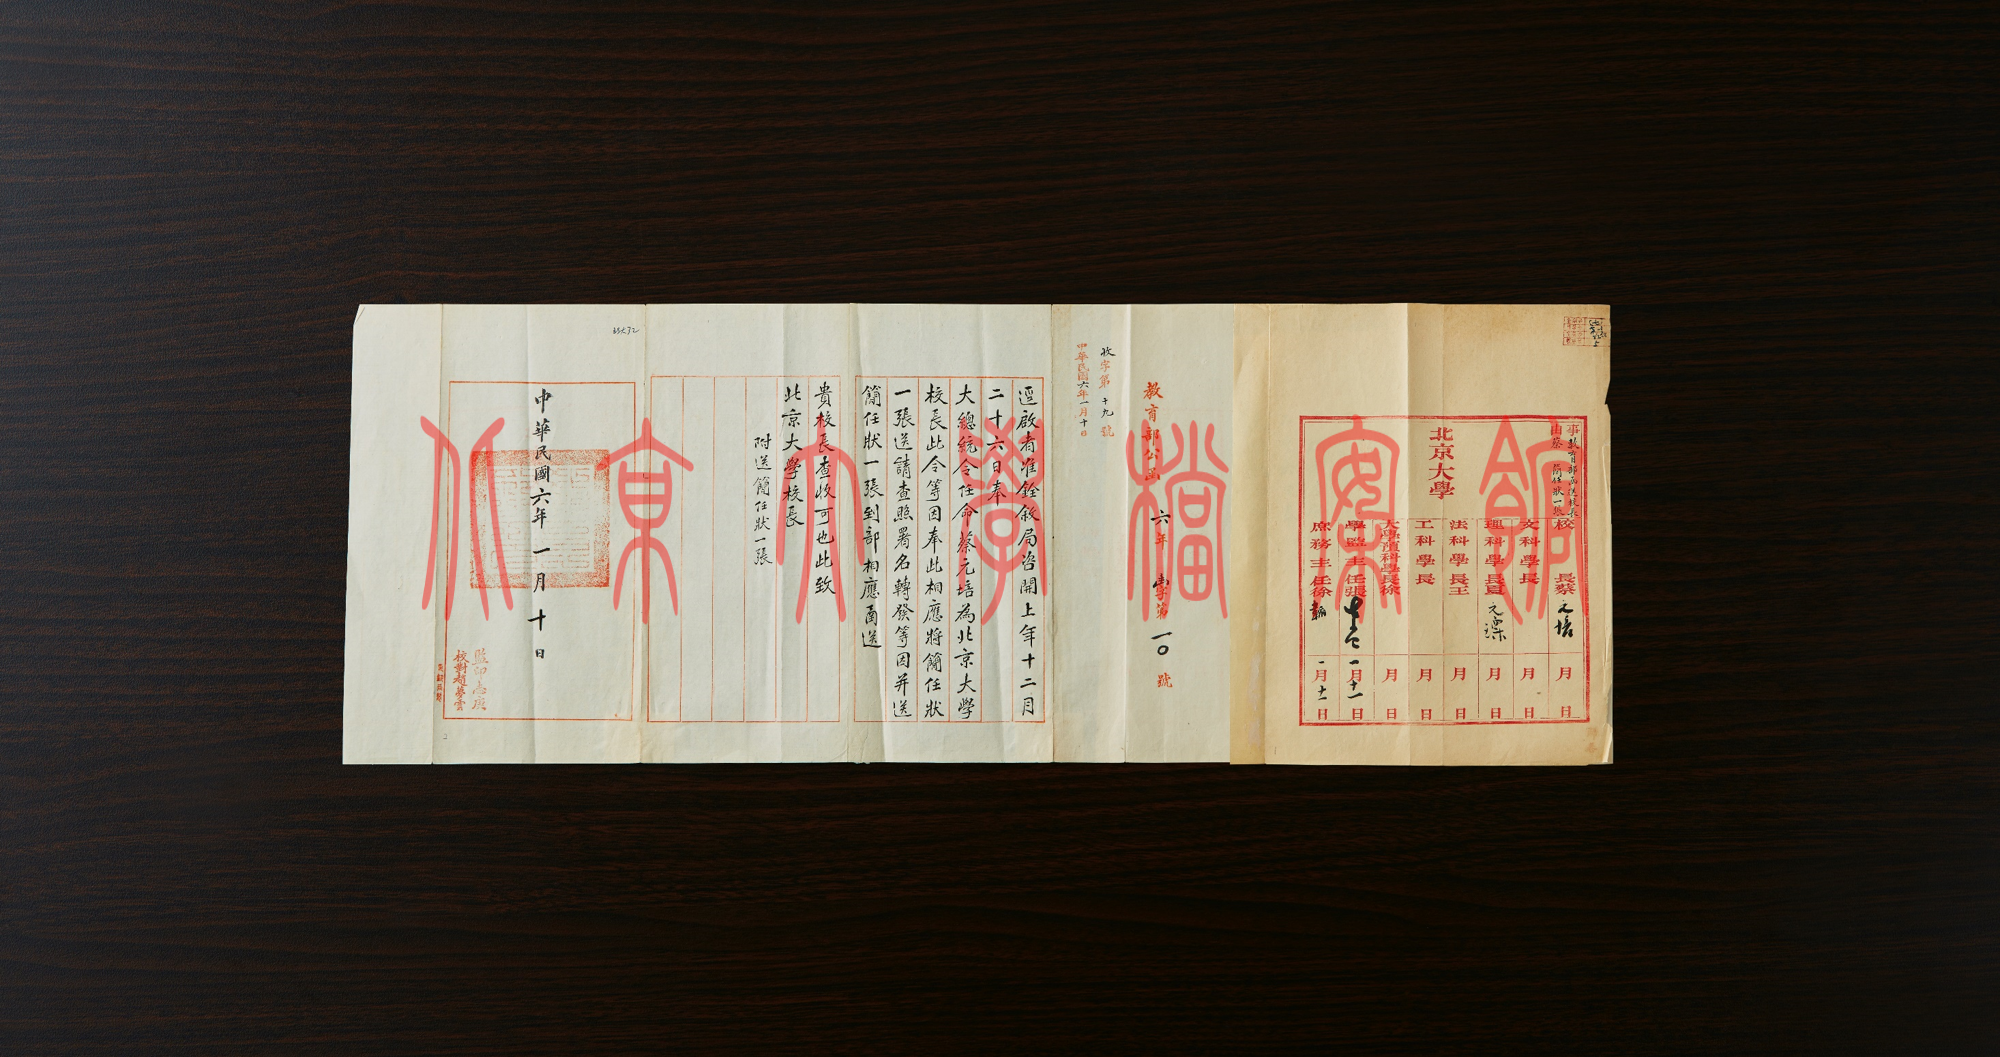 事由
教育部函送校長
蔡 簡任狀一張
北京大學
校長蔡元培 月 日
文科學長 月 日
理科學長夏元瑮 月 日
法科學長王 月 日
工科學長 月 日
大學預科學長徐 月 日
學監主任張 一月十一日
庶務主任徐 一月十一日
教育部公函 六年 字第一〇號
收字第十九號
中華民國六年一月十日
逕啟者准銓敘局咨開上年十二月
二十六日奉
大總統令任命蔡元培為北京大學
校長此令等因奉此相應將簡任狀
一張送請查照署名轉發等因并送
簡任狀一張到部相應函送
貴校長查收可也此致
北京大學校長
附送簡任狀一張
中華民國六年一月十日
監印
校對趙夢雲
北京大學檔案館